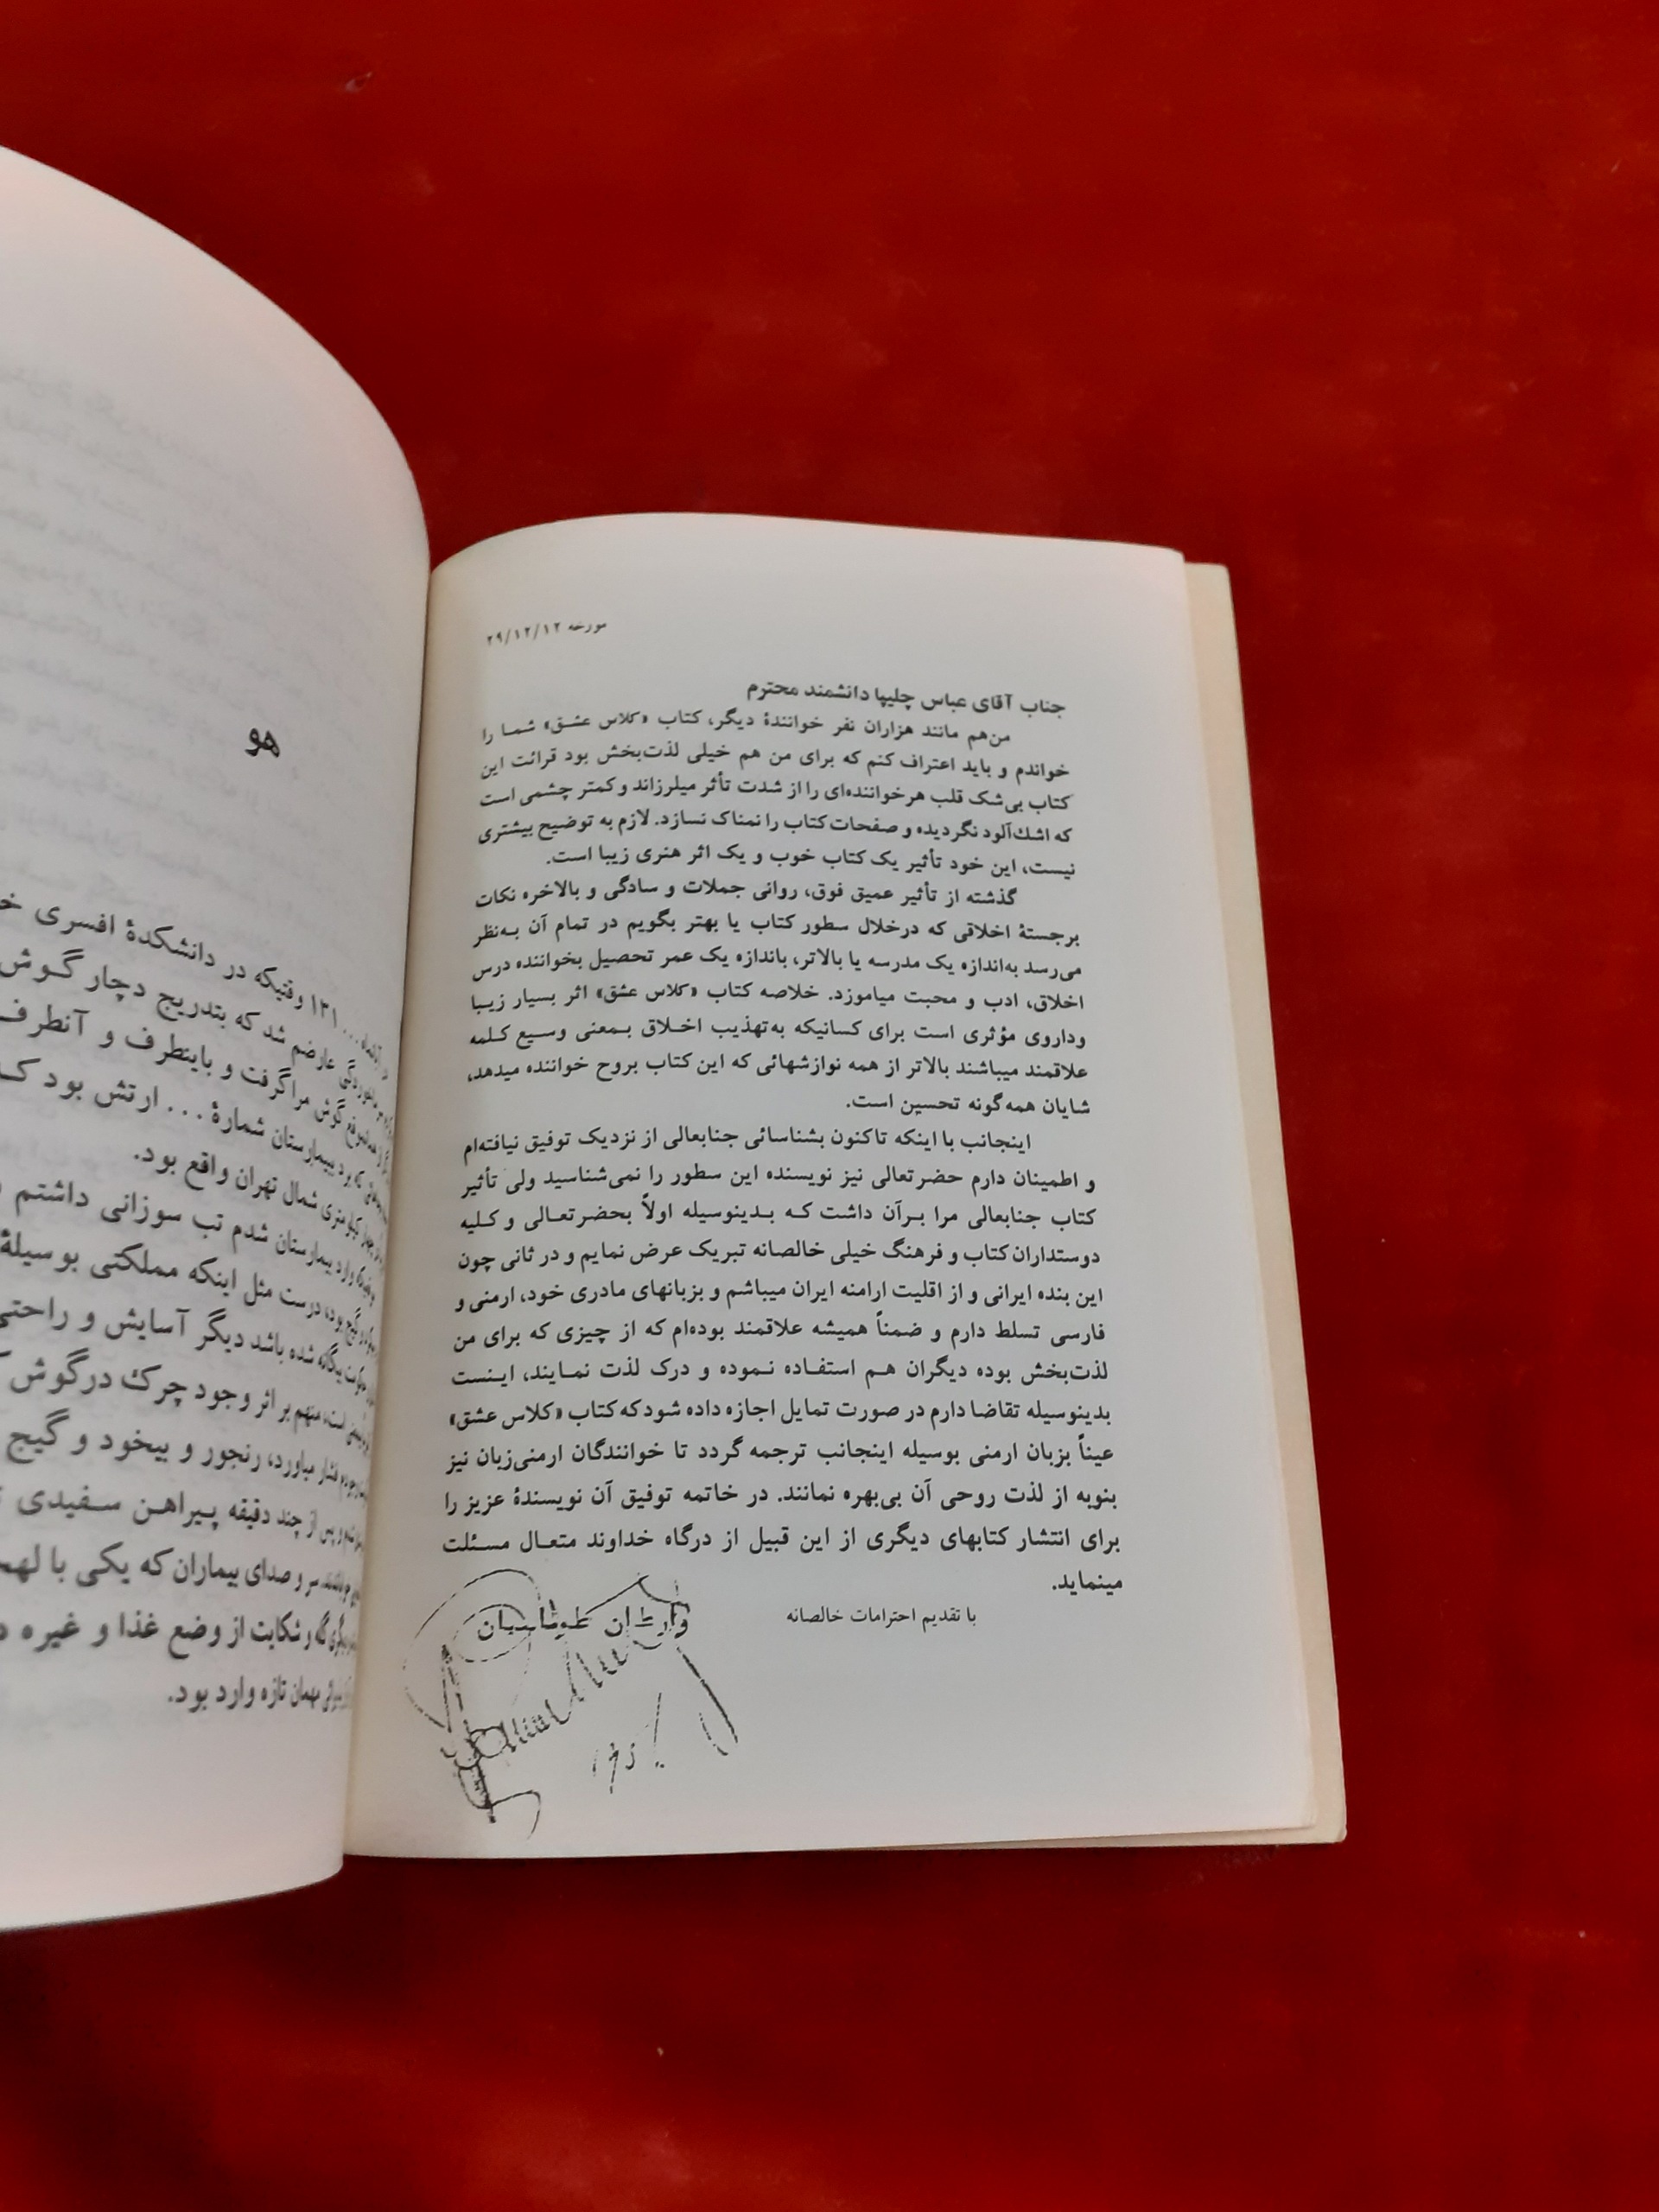 مورخه ۲۹/۱۲/۱۲
جناب آقای عباس چلیپا دانشمند محترم
من‌هم مانند هزاران نفر خوانندهٔ دیگر، کتاب «کلاس عشق» شما را
خواندم و باید اعتراف کنم که برای من هم خیلی لذت‌بخش بود قرائت این
کتاب بی‌شک قلب هرخواننده‌ای را از شدت تأثر میلرزاند و کمتر چشمی است
که اشك‌آلود نگردیده و صفحات کتاب را نمناک نسازد. لازم به توضیح بیشتری
نیست، این خود تأثیر یک کتاب خوب و یک اثر هنری زیبا است.
گذشته از تأثیر عمیق فوق، روانی جملات و سادگی و بالاخره نکات
برجستهٔ اخلاقی که درخلال سطور کتاب یا بهتر بگویم در تمام آن به‌نظر
می‌رسد به‌اندازه یک مدرسه یا بالاتر، باندازه یک عمر تحصیل بخواننده درس
اخلاق، ادب و محبت میاموزد. خلاصه کتاب «کلاس عشق» اثر بسیار زیبا
وداروی مؤثری است برای کسانیکه به‌تهذیب اخلاق بمعنی وسیع کلمه
علاقمند میباشند بالاتر از همه نوازشهائی که این کتاب بروح خواننده میدهد،
شایان همه‌گونه تحسین است.
اینجانب با اینکه تاکنون بشناسائی جنابعالی از نزدیک توفیق نیافته‌ام
و اطمینان دارم حضرتعالی نیز نویسنده این سطور را نمی‌شناسید ولی تأثیر
کتاب جنابعالی مرا برآن داشت که بدینوسیله اولاً بحضرتعالی و کلیه
دوستداران کتاب و فرهنگ خیلی خالصانه تبریک عرض نمایم و در ثانی چون
این بنده ایرانی و از اقلیت ارامنه ایران میباشم و بزبانهای مادری خود، ارمنی و
فارسی تسلط دارم و ضمناً همیشه علاقمند بوده‌ام که از چیزی که برای من
لذت‌بخش بوده دیگران هم استفاده نموده و درک لذت نمایند، اینست
بدینوسیله تقاضا دارم در صورت تمایل اجازه داده شود که کتاب «کلاس عشق»
عیناً بزبان ارمنی بوسیله اینجانب ترجمه گردد تا خوانندگان ارمنی‌زبان نیز
بنوبه از لذت روحی آن بی‌بهره نمانند. در خاتمه توفیق آن نویسندهٔ عزیز را
برای انتشار کتابهای دیگری از این قبیل از درگاه خداوند متعال مسئلت
مینماید.
با تقدیم احترامات خالصانه
هو
۱۳۱ وقتیکه در دانشکدهٔ افسری
عارضم شد که بتدریج دچار گوش
گوش مرا گرفت و باینطرف و آنطرف
بیمارستان شمارهٔ ... ارتش بود
شمال تهران واقع بود.
وارد بیمارستان شدم تب سوزانی داشتم
بود، درست مثل اینکه مملکتی بوسیلهٔ
بیگانه شده باشد دیگر آسایش و راحتی
بر اثر وجود چرک درگوش
فشار میاورد، رنجور و بیخود و گیج
پس از چند دقیقه پیراهن سفیدی
سر و صدای بیماران که یکی با
و شکایت از وضع غذا و غیره
مهمان تازه وارد بود.